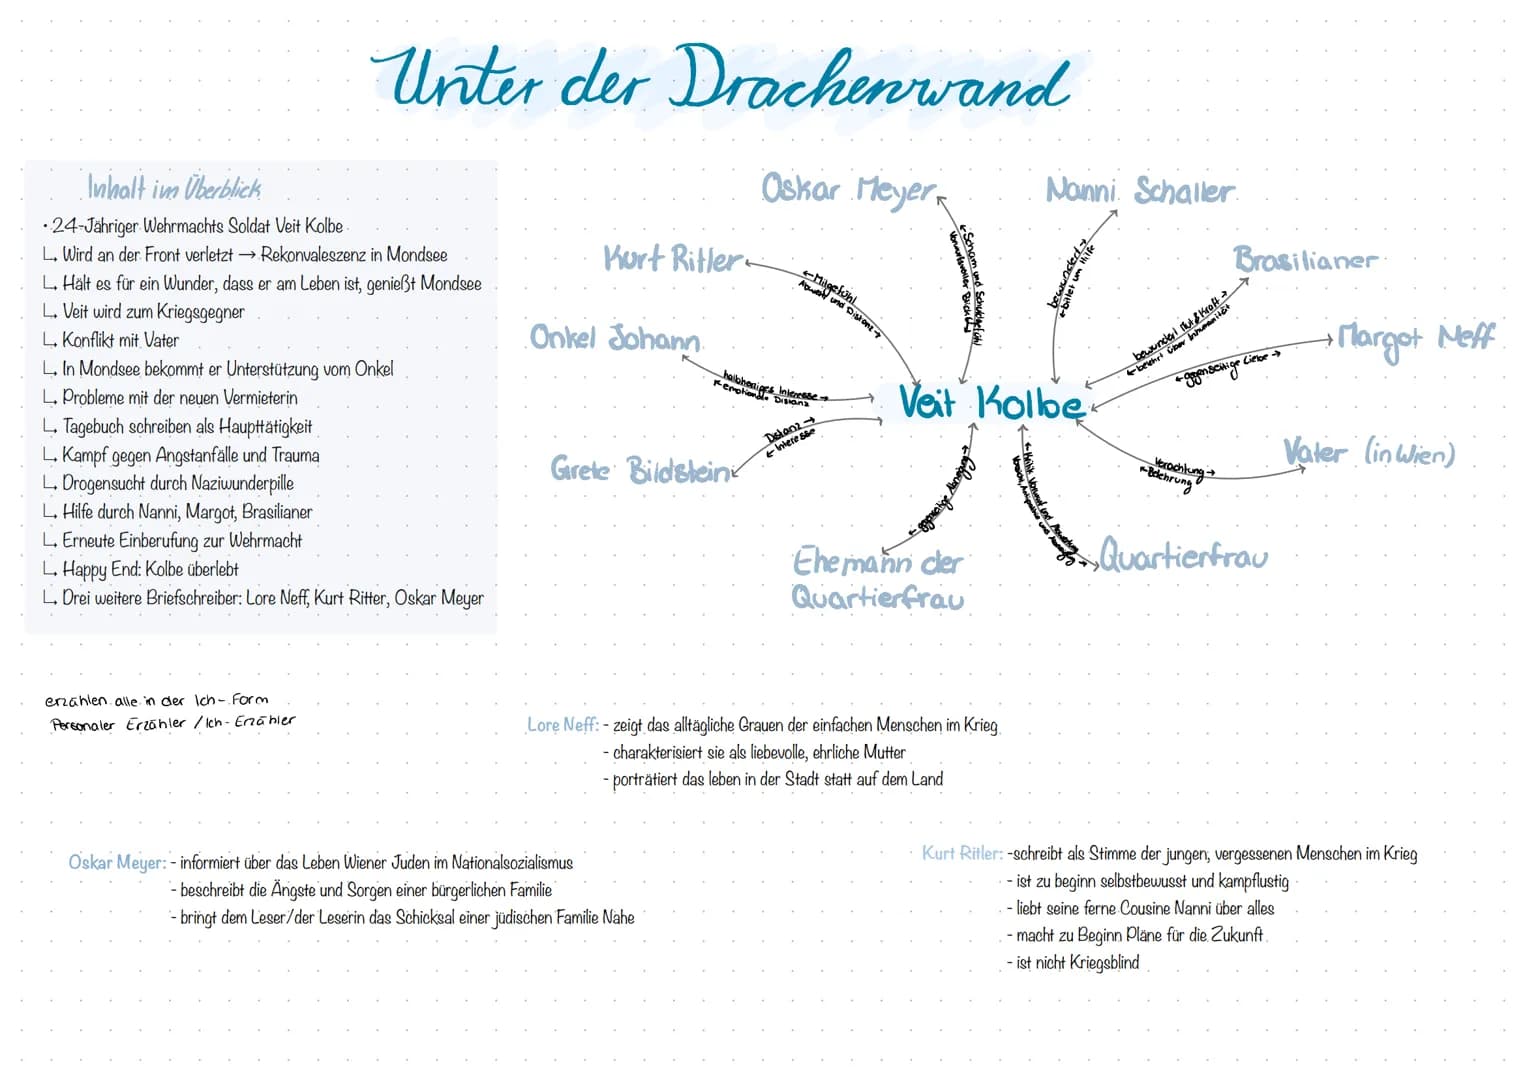 Unter der Drachenwand
Inhalt im Überblick
· 24-Jähriger Wehrmachts Soldat Veit Kolbe
↳ Wird an der Front verletzt → Rekonvaleszenz in Mondsee
↳ Hält es für ein Wunder, dass er am Leben ist, genießt Mondsee
↳ Veit wird zum Kriegsgegner
↳ Konflikt mit Vater
↳ In Mondsee bekommt er Unterstützung vom Onkel
↳ Probleme mit der neuen Vermieterin
↳ Tagebuch schreiben als Haupttätigkeit
↳ Kampf gegen Angstanfälle und Trauma
↳ Drogensucht durch Naziwunderpille
↳ Hilfe durch Nanni, Margot, Brasilianer
↳ Erneute Einberufung zur Wehrmacht
↳ Happy End: Kolbe überlebt
↳ Drei weitere Briefschreiber: Lore Neff, Kurt Ritter, Oskar Meyer
Oskar Meyer
← Scham und Schuldgefühl
vorwurfsvoller Blick
Nanni Schaller
bewundert →
← bittet um Hilfe
Kurt Ritler
← Mitgefühl
und Distanz →
Brasilianer
bewundert Mut & Kraft →
← belehrt über Inhumanität
Onkel Johann
halbherziges Interesse →
← emotionale Distanz
Margot Neff
← gegenseitige Liebe →
Veit Kolbe
Grete Bildstein
Distanz →
← Interesse
Vater (in Wien)
Verachtung →
← Belehrung
Ehemann der
Quartierfrau
← gegenseitige Abneigung →
Quartierfrau
erzählen alle in der Ich-Form
Personaler Erzähler / Ich-Erzähler
Lore Neff: - zeigt das alltägliche Grauen der einfachen Menschen im Krieg
- charakterisiert sie als liebevolle, ehrliche Mutter
- porträtiert das leben in der Stadt statt auf dem Land
Oskar Meyer: - informiert über das Leben Wiener Juden im Nationalsozialismus
- beschreibt die Ängste und Sorgen einer bürgerlichen Familie
- bringt dem Leser/der Leserin das Schicksal einer jüdischen Familie Nahe
Kurt Ritler: -schreibt als Stimme der jungen, vergessenen Menschen im Krieg
- ist zu beginn selbstbewusst und kampflustig
- liebt seine ferne Cousine Nanni über alles
- macht zu Beginn Pläne für die Zukunft
- ist nicht Kriegsblind